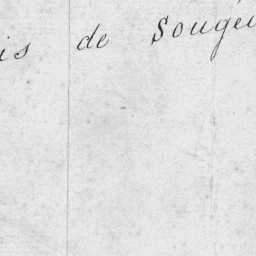 is de Souge